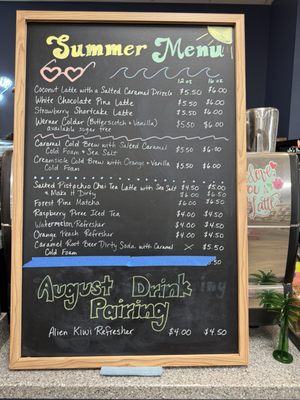 Summer Menu
12 oz 16 oz
Coconut Latte with a Salted Caramel Drizzle $5.50 $6.00
White Chocolate Pina Latte $5.50 $6.00
Strawberry Shortcake Latte $5.50 $6.00
Werner Colder (Butterscotch + Vanilla) $5.50 $6.00
available sugar free
Caramel Cold Brew with Salted Caramel
Cold Foam + Sea Salt $5.50 $6.00
Creamsicle Cold Brew with Orange + Vanilla
Cold Foam $5.50 $6.00
Salted Pistachio Chai Tea Latte with Sea Salt $4.50 $5.00
* Make it Dirty $6.00 $6.50
Forest Pina Matcha $6.00 $6.50
Raspberry Puree Iced Tea $4.00 $4.50
Watermelon Refresher $4.00 $4.50
Orange Peach Refresher $4.00 $4.50
Caramel Root Beer Dirty Soda with Caramel
Cold Foam X $5.50
.50
August Drink
Pairing
Alien Kiwi Refresher $4.00 $4.50
latte